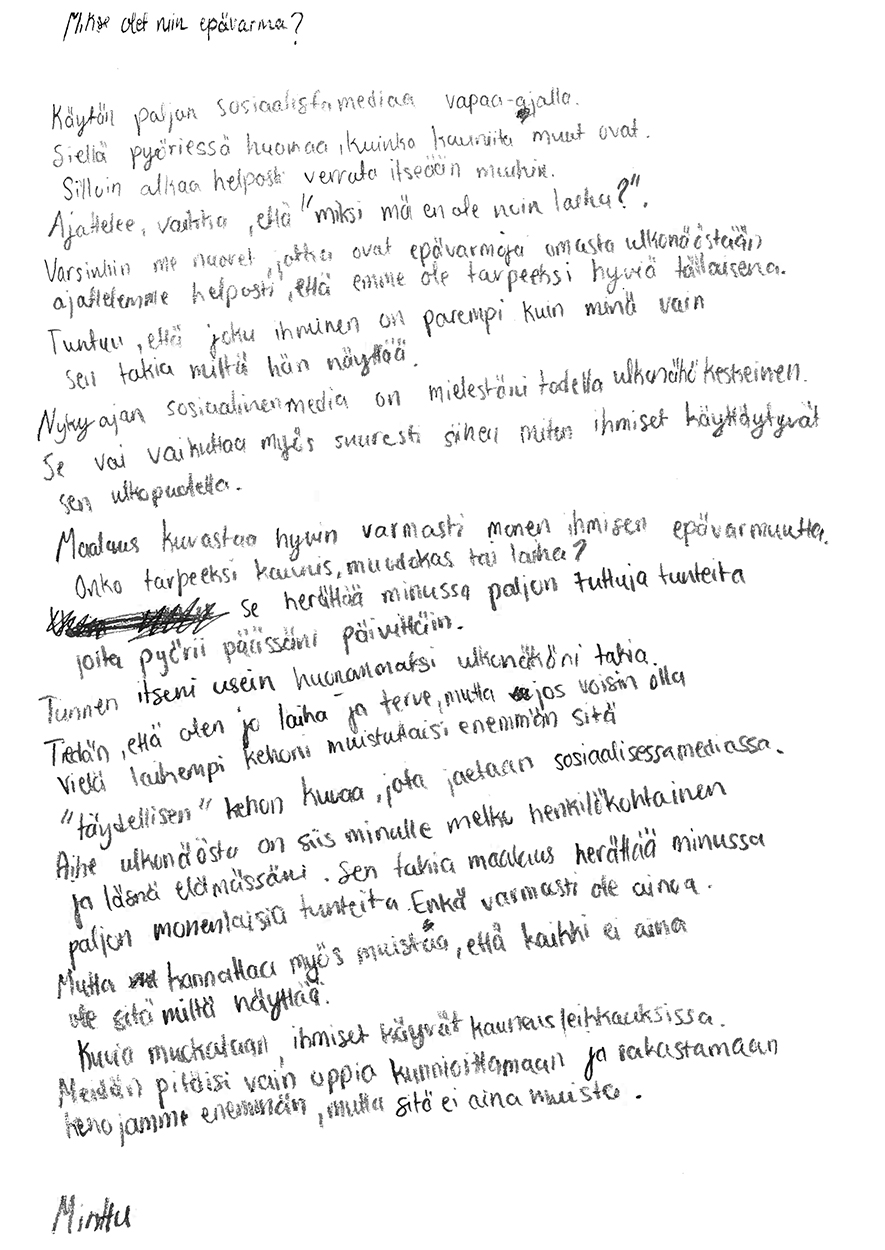 Miksi olet niin epävarma?
Käytän paljon sosiaalistamediaa vapaa-ajalla.
Siellä pyöriessä huomaa, kuinka kauniita muut ovat.
Silloin alkaa helposti verrata itseään muihin.
Ajattelee, vaikka, että "miksi mä en ole noin laiha?".
Varsinkin me nuoret, jotka ovat epävarmoja omasta ulkonäöstään
ajattelemme helposti, että emme ole tarpeeksi hyviä tällaisena.
Tuntuu, että joku ihminen on parempi kuin minä vain
sen takia miltä hän näyttää.
Nykyajan sosiaalinenmedia on mielestäni todella ulkonäkö keskeinen.
Se voi vaikuttaa myös suuresti siihen miten ihmiset käyttäytyvät
sen ulkopuolella.
Maalaus kuvastaa hyvin varmasti monen ihmisen epävarmuutta.
Onko tarpeeksi kaunis, muodokas tai laiha?
Se herättää minussa paljon tuttuja tunteita
joita pyörii päässäni päivittäin.
Tunnen itseni usein huonommaksi ulkonäköni takia.
Tiedän, että olen jo laiha ja terve, mutta jos voisin olla
vielä laihempi kehoni muistuttaisi enemmän sitä
"täydellisen" kehon kuvaa, jota jaetaan sosiaalisessamediassa.
Aihe ulkonäöstä on siis minulle melko henkilökohtainen
ja läsnä elämässäni. Sen takia maalaus herättää minussa
paljon monenlaisia tunteita. Enkä varmasti ole ainoa.
Mutta kannattaa myös muistaa, että kaikki ei aina
ole sitä miltä näyttää.
Kuvia muokataan, ihmiset käyvät kauneusleikkauksissa.
Meidän pitäisi vain oppia kunnioittamaan ja rakastamaan
kehojamme enemmän, mutta sitä ei aina muista.
Minttu